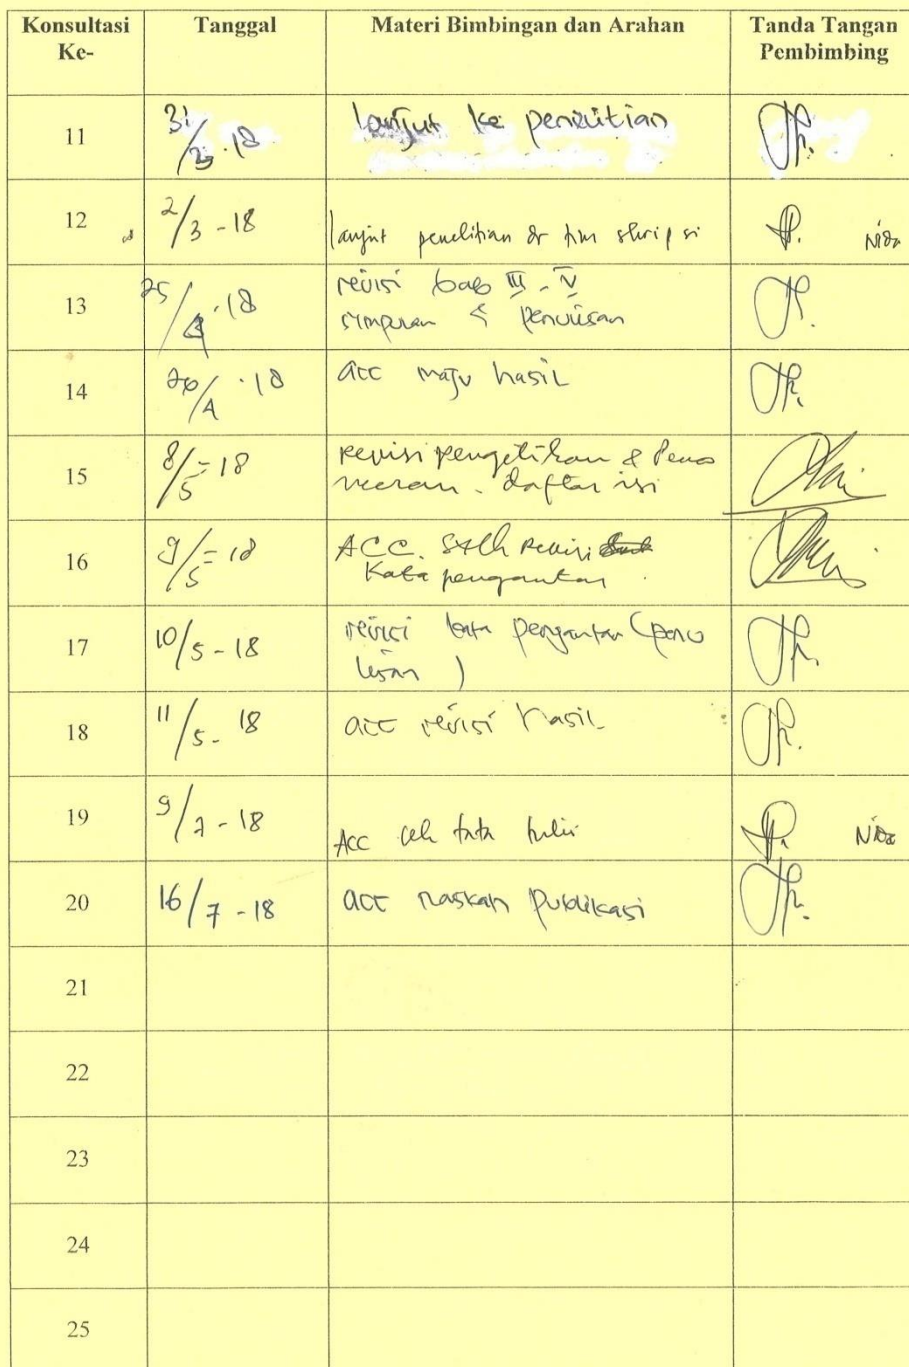 Konsultasi Ke- Tanggal Materi Bimbingan dan Arahan Tanda Tangan Pembimbing
11 31/3-18 lanjut ke penelitian
12 2/3-18 lanjut penelitian dr tim skripsi Nida
13 25/4-18 revisi bab III - V
simpulan & penulisan
14 26/4-18 acc maju hasil
15 8/5-18 revisi pengetikan & Peno
meran. daftar isi
16 9/5-18 ACC. Stlh Revisi
Kata pengantar
17 10/5-18 revisi kata pengantar (penu
lisan)
18 11/5-18 acc revisi hasil
19 9/7-18 Acc cek tata tulis Nida
20 16/7-18 acc naskah publikasi
21
22
23
24
25